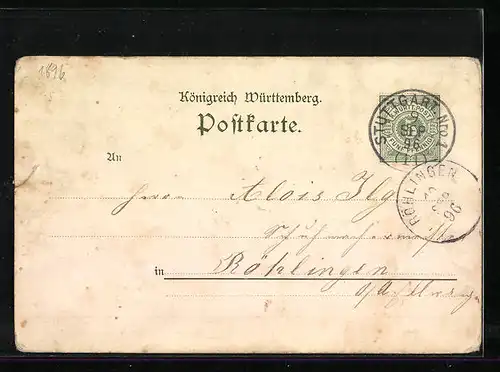 1896
Königreich Württemberg.
Postkarte.
STUTTGART No 1
9
SEP
96
An
Herrn Alois Ilg
Schuhmachermeister
in Röhlingen
RÖHLINGEN
96